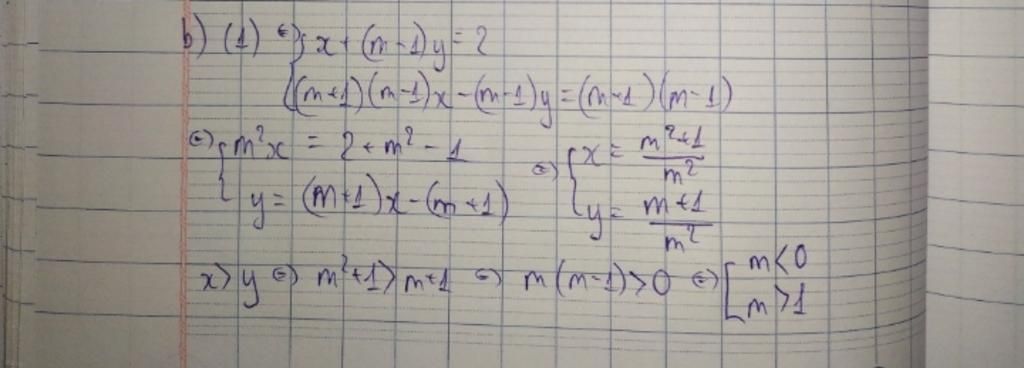 b) (1) ⇔ { x + (m-1)y = 2
(m+1)(m-1)x - (m-1)y = (m+1)(m-1)
⇔ { m²x = 2 + m² - 1
y = (m+1)x - (m+1)
⇔ { x = (m²+1)/m²
y = (m+1)/m²
x > y ⇔ m²+1 > m+1 ⇔ m(m-1) > 0 ⇔ [ m < 0
m > 1